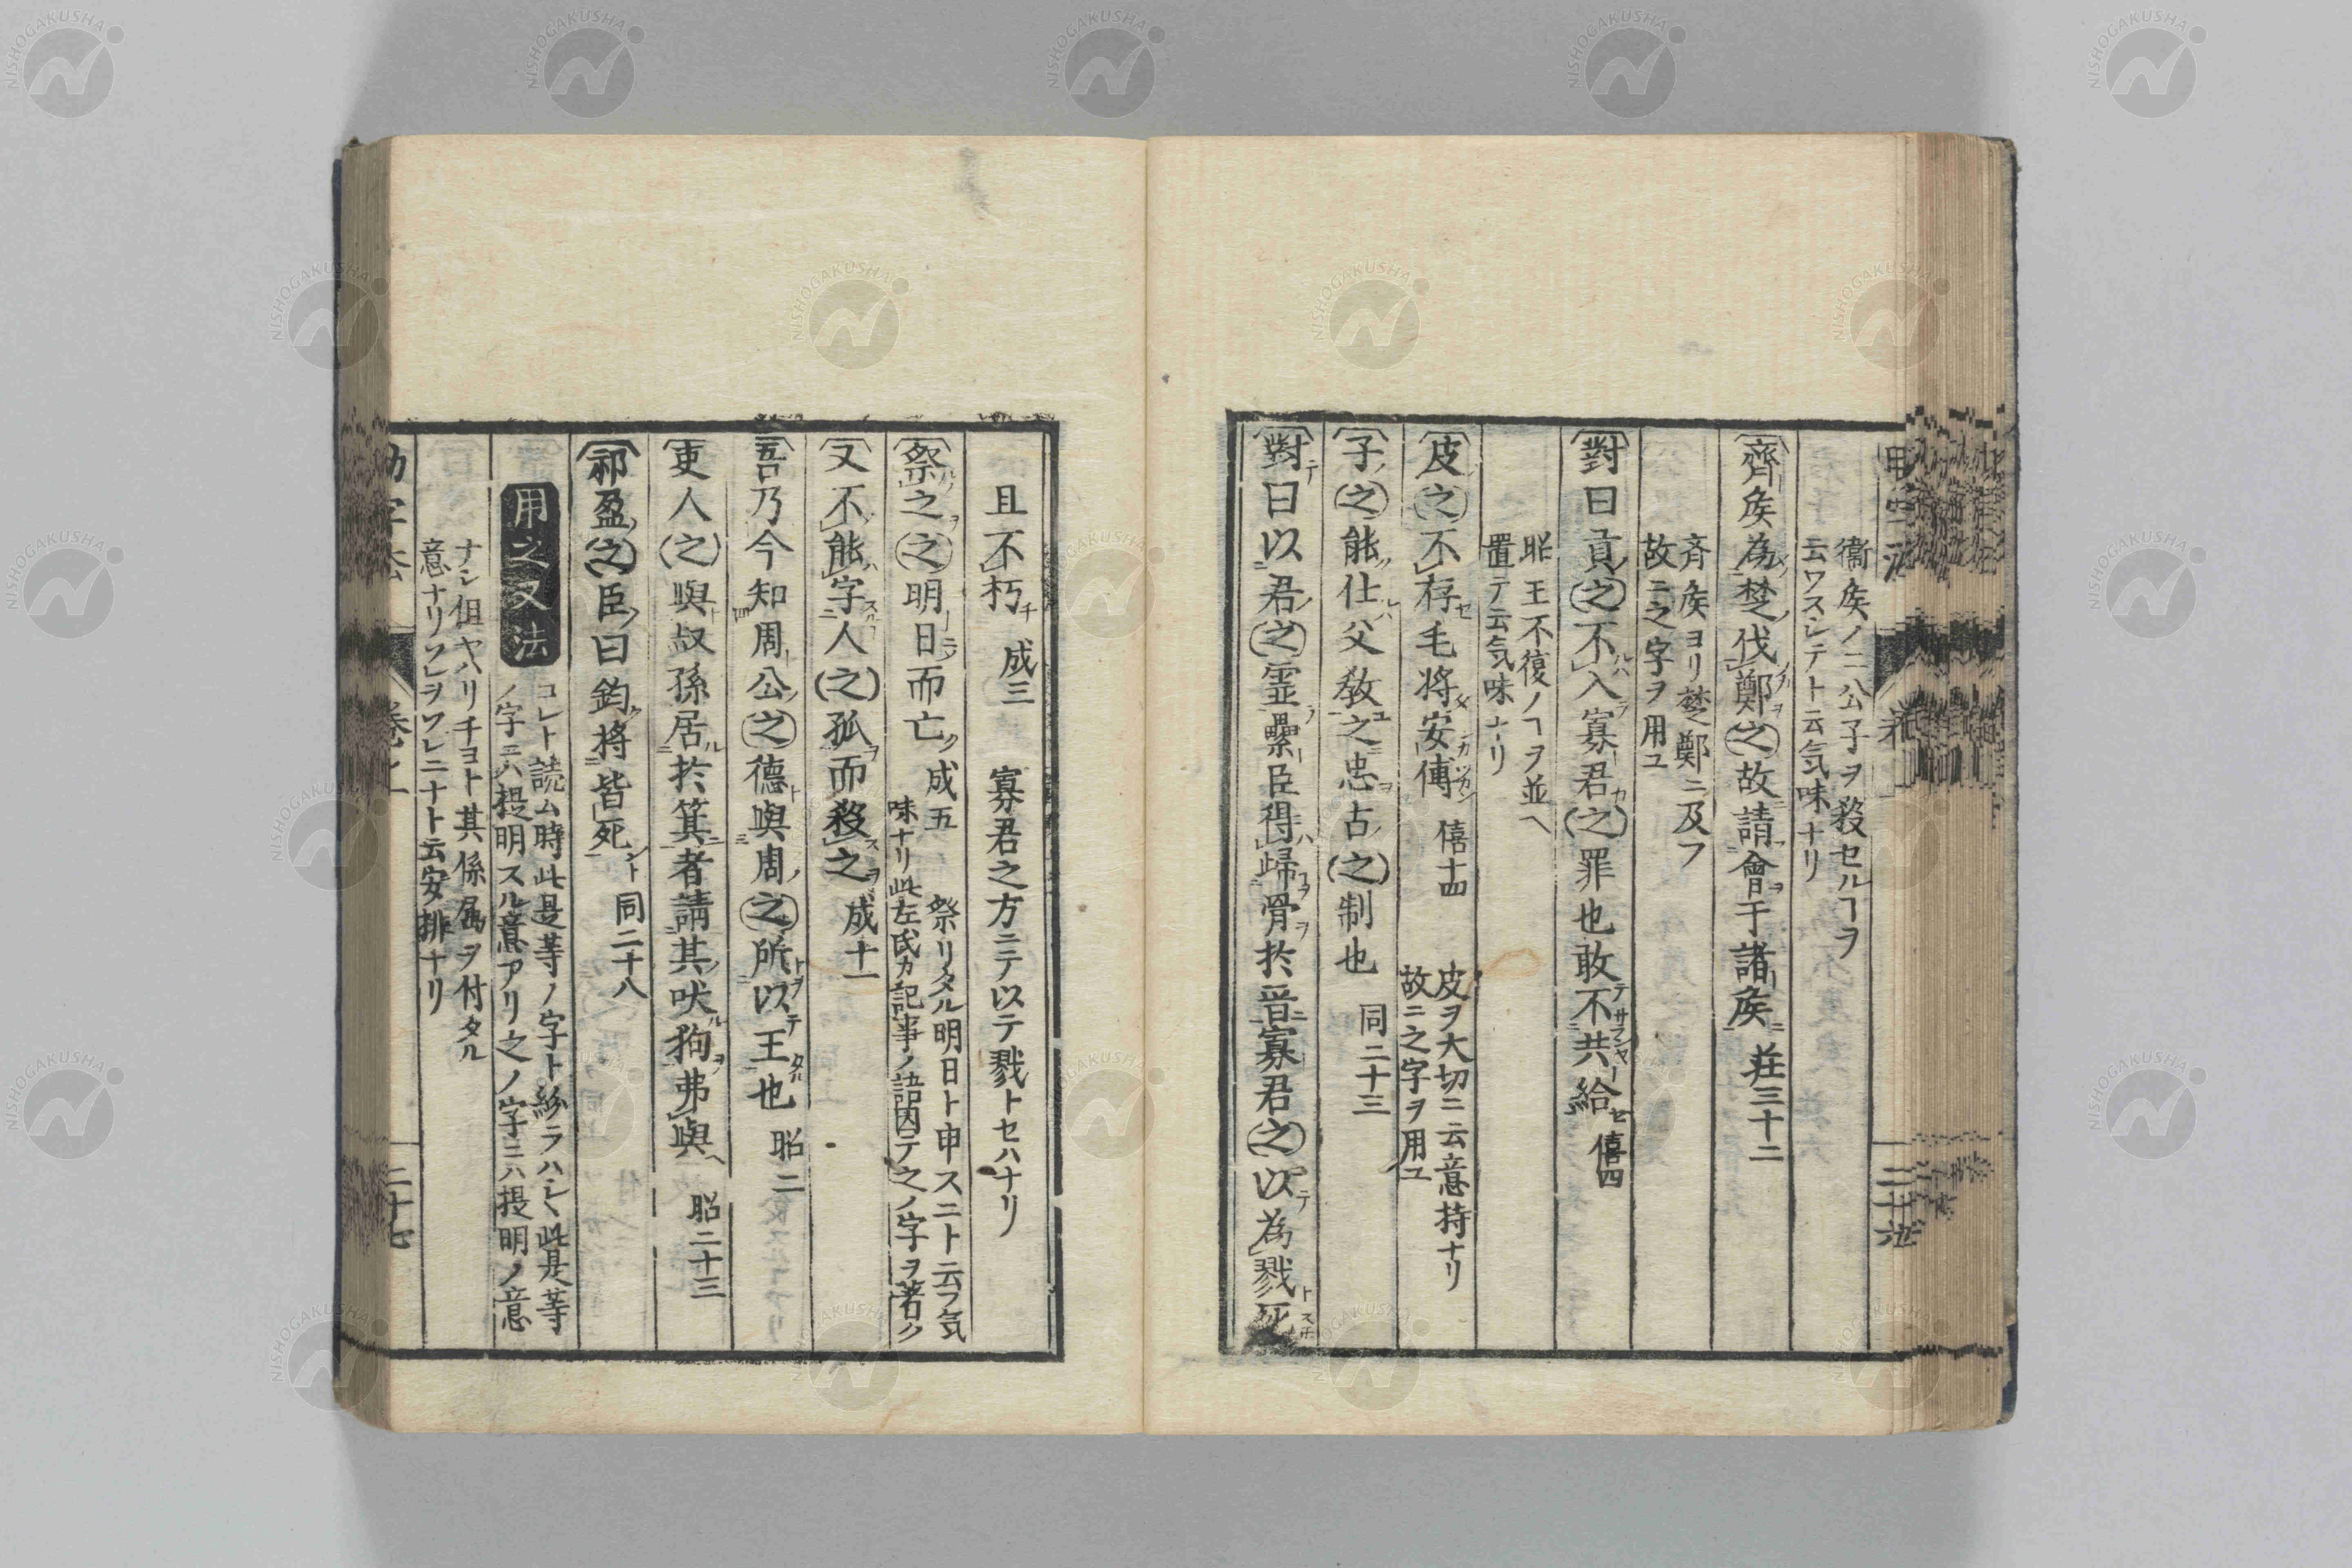 衞矦ノ二公子ヲ殺セルヿヲ
云ワスシテト云気味ナリ
齊矦為楚伐鄭之故請會于諸矦 荘三十二
斉矦ヨリ楚鄭ニ及フ
故ニ之字ヲ用ユ
對曰貢之不入寡君之罪也敢不共給 僖四
昭王不復ノヿヲ並ヘ
置テ云気味ナリ
皮之不存毛將安傅 僖十四
皮ヲ大切ニ云意持ナリ
故ニ之字ヲ用ユ
子之能仕父敎之忠古之制也 同二十三
對曰以君之霊纍臣得歸骨於晋寡君之以為戮死
且不朽 成三 寡君之方ニテ以テ戮トセハナリ
祭之之明日而亡 成五
祭リタル明日ト申スニト云フ気
味ナリ此左氏カ記事ノ語因テ之ノ字ヲ著ク
又不能字人之孤而殺之 成十一
吾乃今知周公之德與周之所以王也 昭二
吏人之與叔孫居於箕者請其吠狗弗與 昭二十三
祁盈之臣曰鈞將皆死 同二十八
用之又法
コレト読ム時此是等ノ字ト紛ラハシ此是等
ノ字ニハ提明スル意アリ之ノ字ニハ提明ノ意
ナシ但ヤハリチヨト其係属ヲ付タル
意ナリコレヲワレニナト云安排ナリ
二十七